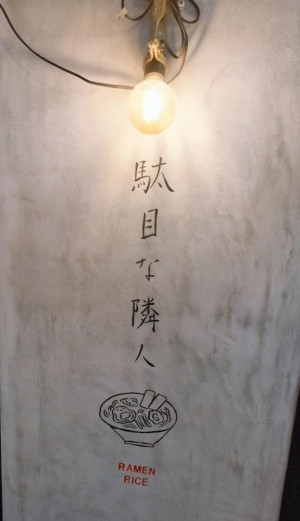 駄目な隣人
RAMEN
RICE